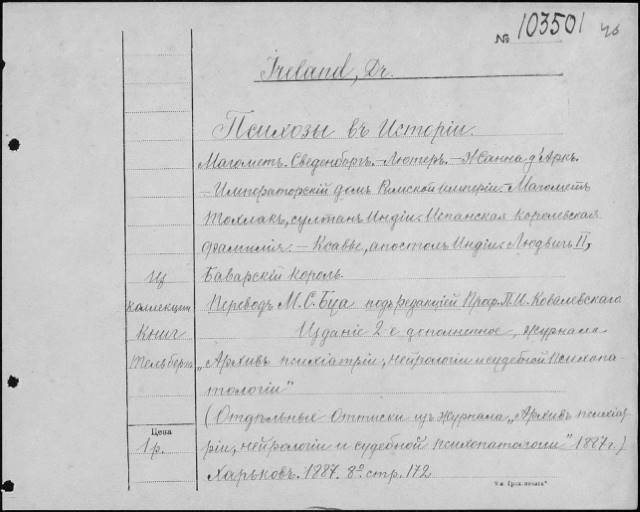 № 103501
Ireland, Dr.
Психозы въ Исторіи.
Магометъ. Сведенборгъ. – Лютеръ. – Жанна д'Аркъ.
– Императорскій домъ Римской имперіи. – Магометъ
Тохлакъ, султанъ Индіи. Испанская королевская
фамилія. – Ксавье, апостолъ Индіи. Людвигъ II,
Баварскій король.
Переводъ М. С. Буа подъ редакціей Проф. П. И. Ковалевскаго
Изданіе 2-е дополненное, журнала
„Архивъ психіатріи, нейрологіи и судебной психопа-
тологіи"
(Отдѣльные оттиски изъ журнала „Архивъ психіат
ріи, нейрологіи и судебной психопатологіи" 1887 г.)
Харьковъ. 1887. 8º. стр. 172
Из
коллекции
Книг
Тельберга
Цена
1 р.